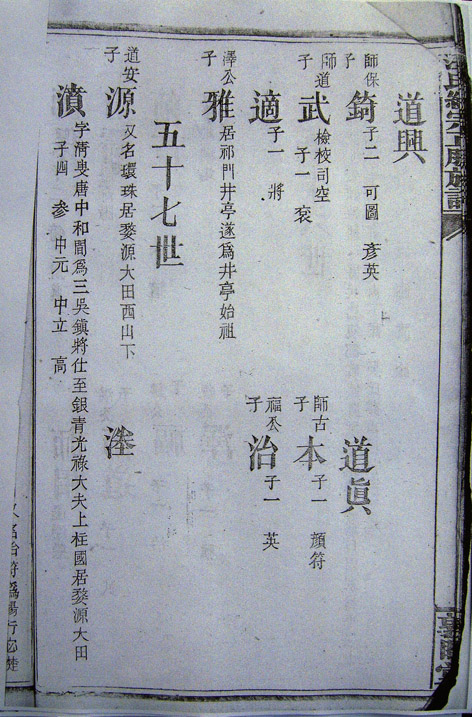 氏統宗正脈
道興
道眞
師保子 錡 子二 可圖 彥英
師道子 武 檢校司空 子一 衮
師古子 本 子一 顔符
適 子一 將
福公子 治 子一 英
澤公子 雅 居祁門井亭遂爲井亭始祖
五十七世
道安子 源 又名環珠居婺源大田西山下
濆 字清叟唐中和間爲三吳鎮將仕至銀青光祿大夫上柱國居婺源大田
子四 參 中元 中立 高
名台符爲楊行密